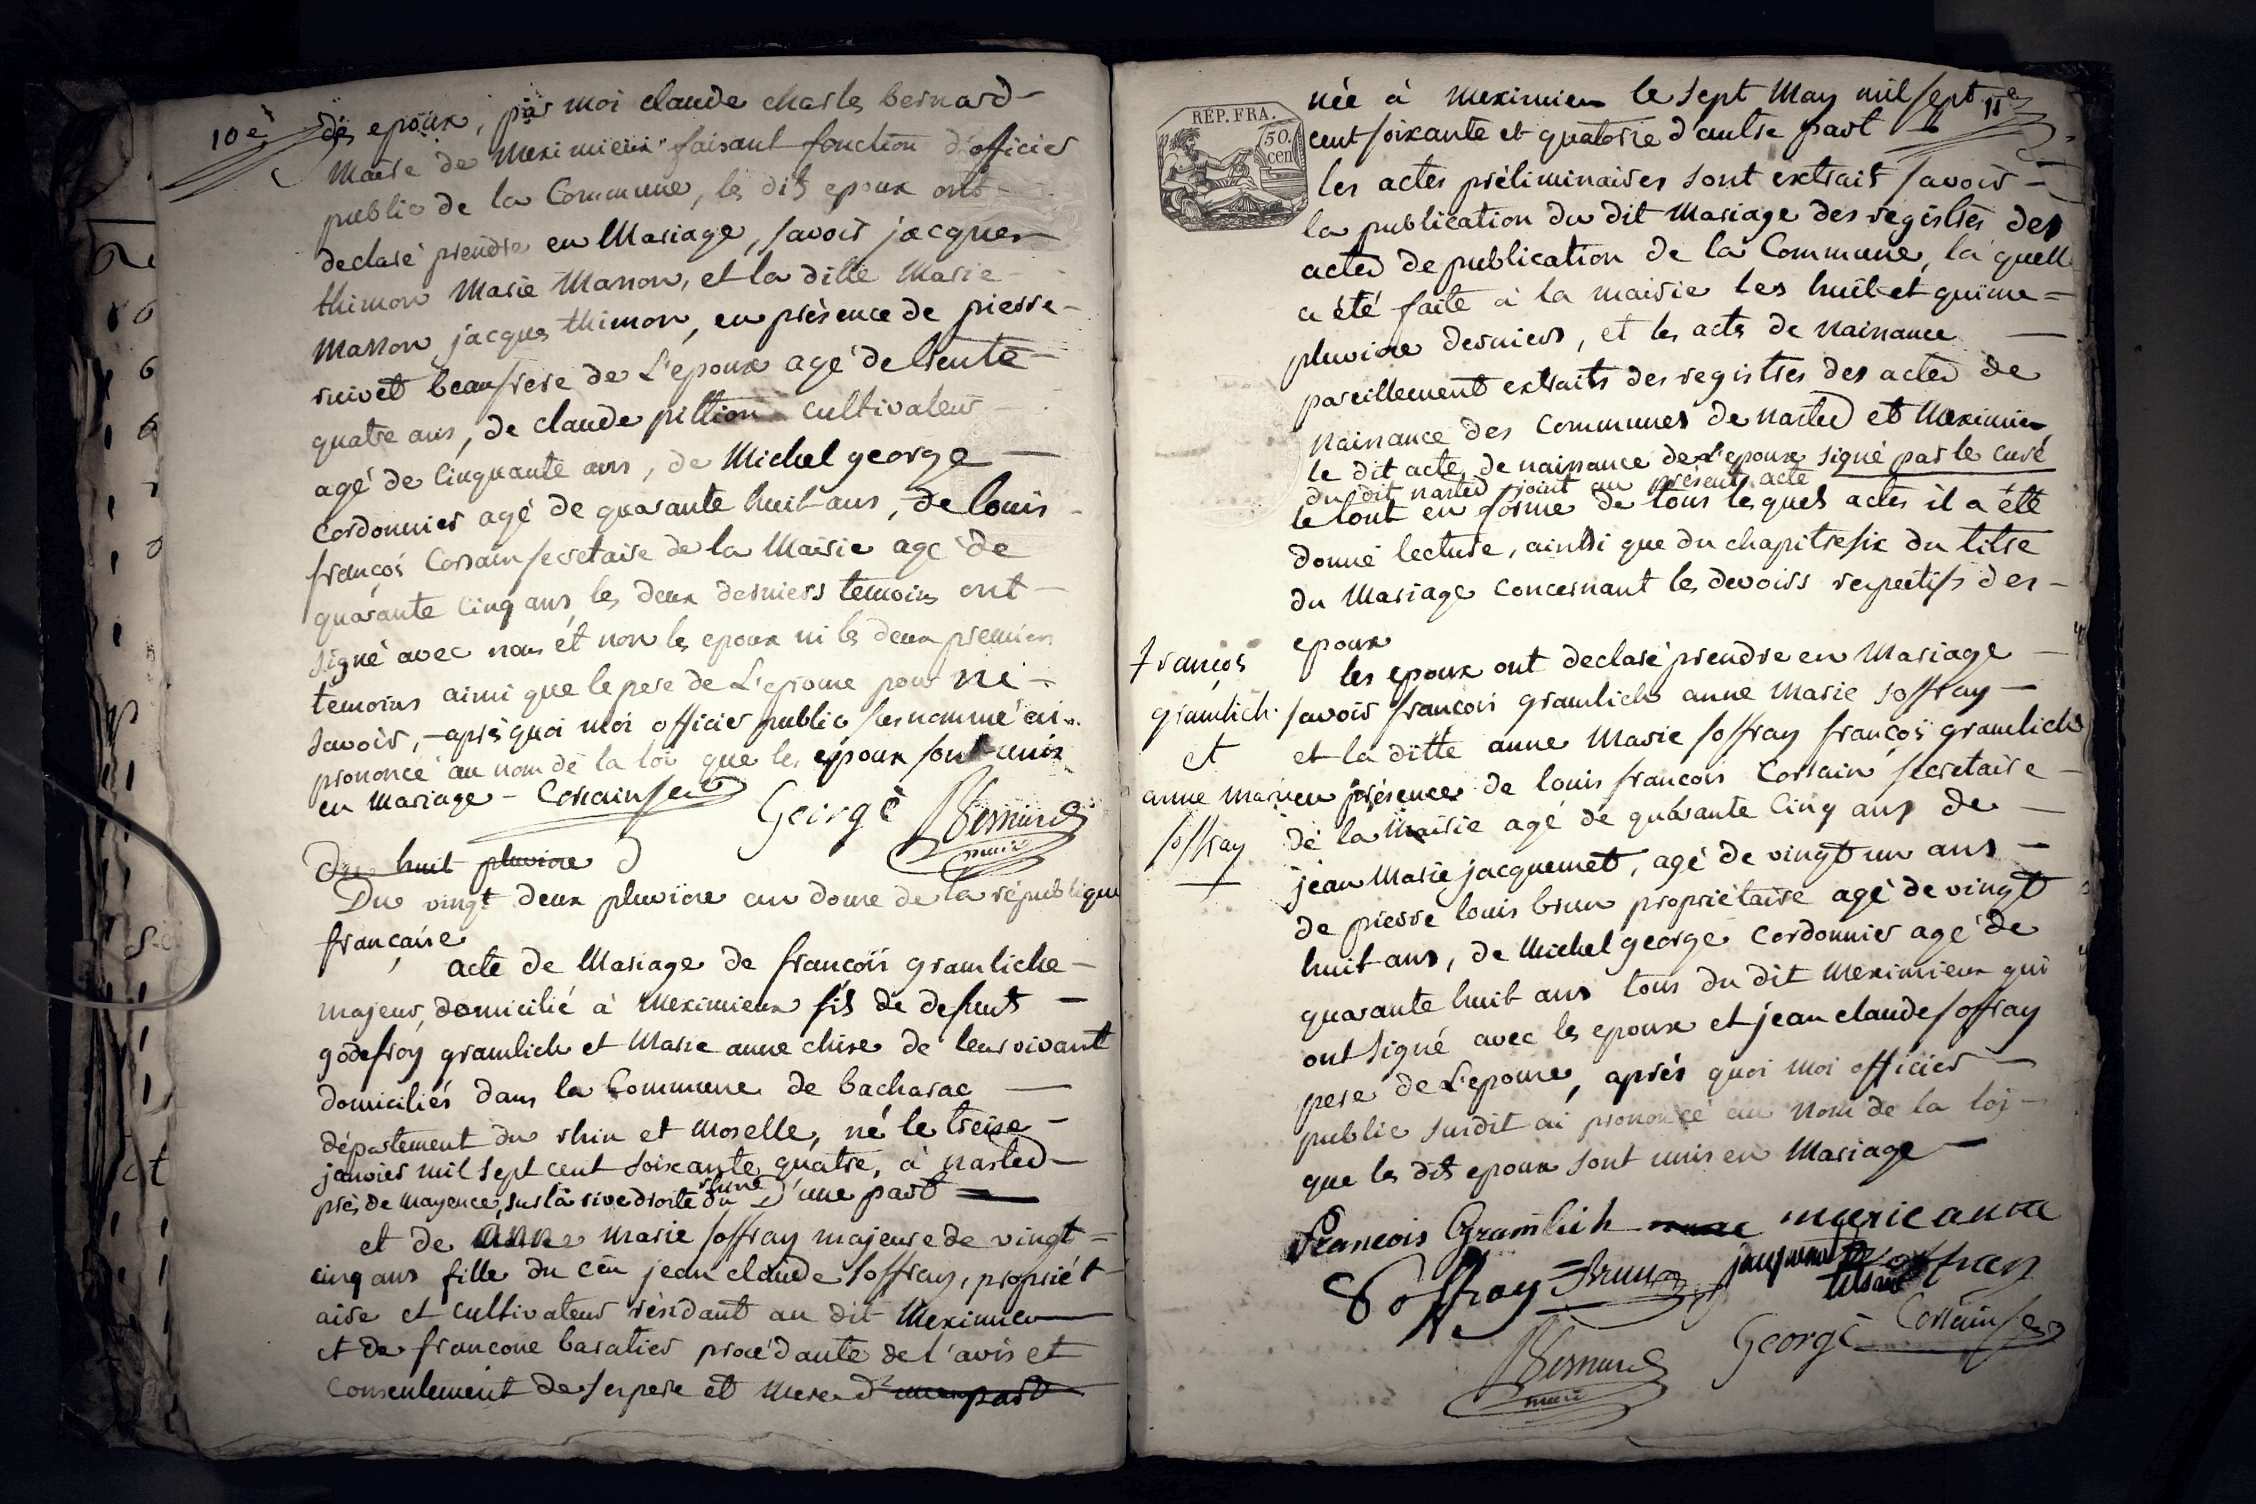 10e
des epoux, par moi claude charles bernard
Maire de Meximieux faisant fonction d'officier
public de la Commune, les dits epoux ont
declaré prendre en Mariage, savoir jacques
thimon Marie Masson, et la ditte Marie
Masson jacques thimon, en présence de pierre
ruivet beaufrere de L'epoux agé de trente
quatre ans, de claude pillion cultivateur
agé de Cinquante ans, de Michel george
Cordonnier agé de quarante huit ans, de louis
françois Corsain secretaire de la Mairie agé de
quarante Cinq ans, les deux derniers temoins ont
signé avec nous et non les epoux ni les deux premiers
temoins ainsi que le pere de L'epouse pour ne
savoir, après quoi moi officier public susnommé ai
prononcé au nom de la loi que les epoux sont unis
en Mariage - Corsain sec
George Bernard
maire
Du huit pluviose
Du vingt deux pluviose an douse de la république
françaire
acte de Mariage de françois gramliche
majeur, domicilié à Meximieux fils de defunts
godefroy gramlich et Marie anne chire de leur vivant
domiciliés dans la Commune de bacharac
département du rhin et Moselle, né le treise
janvier mil sept cent soixante quatre, à narted
près de Mayence, sur la rive droite du rhine D'une part
et de anne Marie soffray majeure de vingt
cinq ans fille du cen jean claude soffray, propriét
aire et cultivateur résidant au dit Meximieu
et de francoise baratier procédante de l'avis et
Consentement de ses pere et Mere d'une part
REP. FRA.
50.
cen
11e
née à Meximieu le sept May mil sept
cent soixante et quatorse d'autre part
les actes préliminaires sont extrait savoir
la publication du dit Mariage des registres des
actes de publication de la Commune, la quelle
a été faite à la mairie les huit et quinse
pluviose derniers, et les acts de naissance
pareillement extraits des registres des actes de
naissance des Communes de narted et Meximieu
le dit acte de naissance de L'epoux signé par le curé
du dit narted joint au présent acte
le tout en forme de tous lesquels actes il a été
donné lecture, ainsi que du chapitre six du titre
du Mariage Concernant les devoirs respectifs des
epoux
les epoux ont declaré prendre en Mariage
françois
gramlich
et
anne marie
soffray
savoir françois gramlich anne Marie soffray
et la ditte anne Marie soffray françois gramlich
en présence de louis françois Corsain secretaire
de la Mairie agé de quarante Cinq ans de
jean Marie jacquemet, agé de vingt un ans
de pierre louis brun propriétaire agé de vingt
huit ans, de Michel george Cordonnier agé de
quarante huit ans tous du dit Meximieux qui
ont signé avec les epoux et jean claude soffray
pere de L'epouse, après quoi moi officier
public susdit ai prononcé au nom de la loi
que les dits epoux sont unis en Mariage
Francois Gramlich marie anne
Soffray Brun jacquemet soffray
George Corsain sec
Bernard
maire